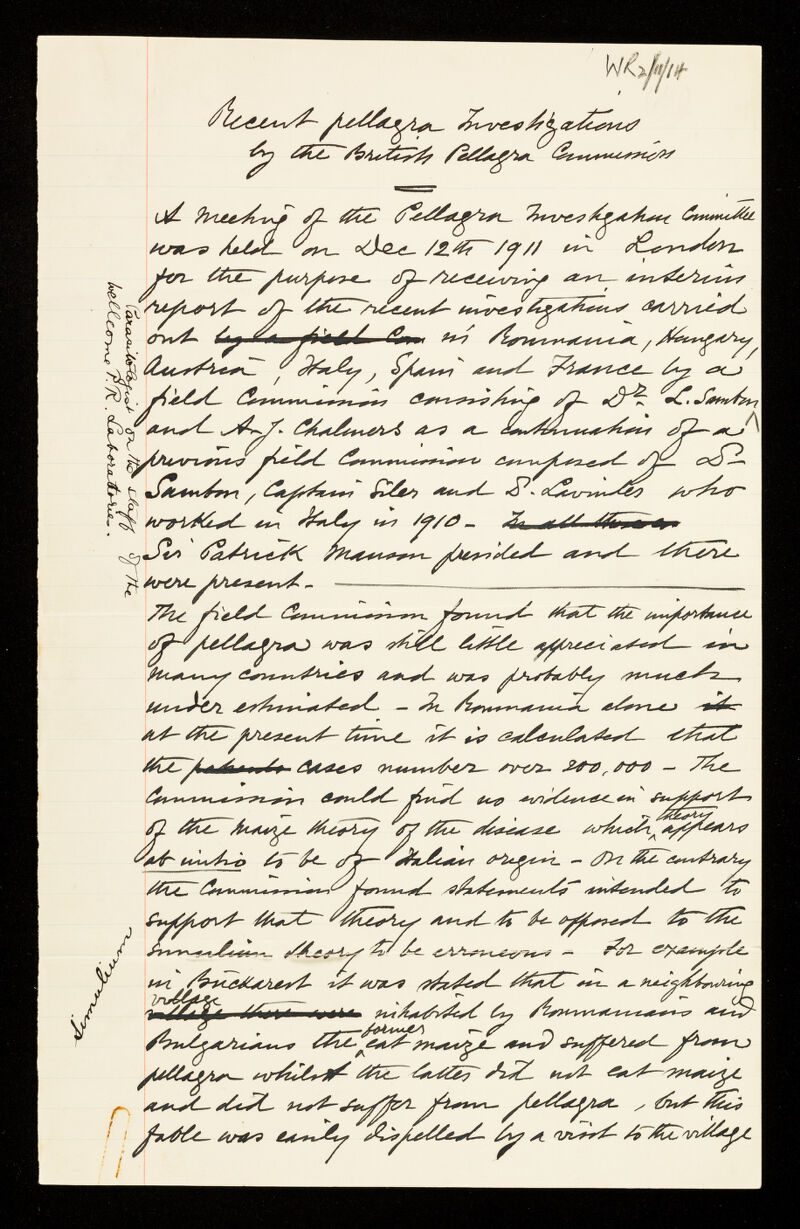 WR 2/11/14
Recent pellagra Investigations
by the British Pellagra Commission
A Meeting of the Pellagra Investigation Committee
was held on Dec 12th 1911 in London
for the purpose of receiving an interim
report of the recent investigations carried
out by a field Com in Roumania, Hungary,
Austria, Italy, Spain and France by a
field Commission consisting of Dr. L. Sambon
and A. J. Chalmers as a continuation of a
previous field Commission composed of Dr
Sambon, Captain Siler and D. Lavinder who
worked in Italy in 1910 - In all there a
Sir Patrick Manson presided and there
were present -
The field Commission found that the importance
of pellagra was still little appreciated in
many countries and was probably much
under estimated - In Roumania alone it
at the present time it is calculated that
the patients cases number over 200,000 - The
Commission could find no evidence in support
of the Maize theory of the disease which theory appears
ab initio to be of Italian origin - On the contrary
the Commission found statements intended to
support that theory and to be opposed to the
simulium theory to be erroneous - For example
in Buckarest it was stated that in a neighbouring
village
village there were inhabited by Roumanians and
Bulgarians the former eat maize and suffered from
pellagra whilst the latter did not eat maize
and did not suffer from pellagra, but this
fable was easily dispelled by a visit to the village
Parasitologist on the staff of the
Wellcome P. R. Laboratories.
Simulium